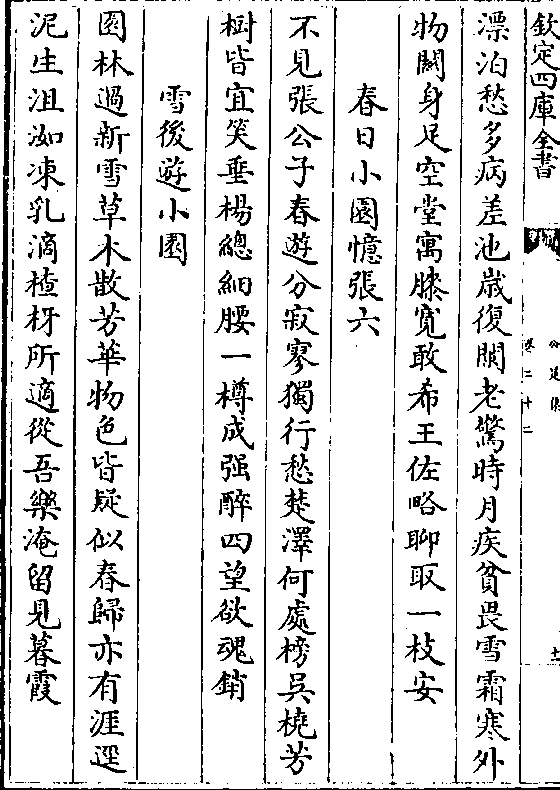 欽定四庫全書
卷二十二
漂泊愁多病差池歲復闌老驚時月疾貧畏雪霜寒外
物關身足空堂寓膝寛敢希王佐略聊取一枝安
春日小園憶張六
不見張公子春遊分寂寥獨行愁楚澤何處榜吳橈芳
樹皆宜笑垂楊總細腰一樽成强醉四望欲魂銷
雪後遊小園
園林過新雪草木散芳華物色皆疑似春歸亦有涯逕
泥生沮洳凍乳滴楂枒所適從吾樂淹留見暮霞